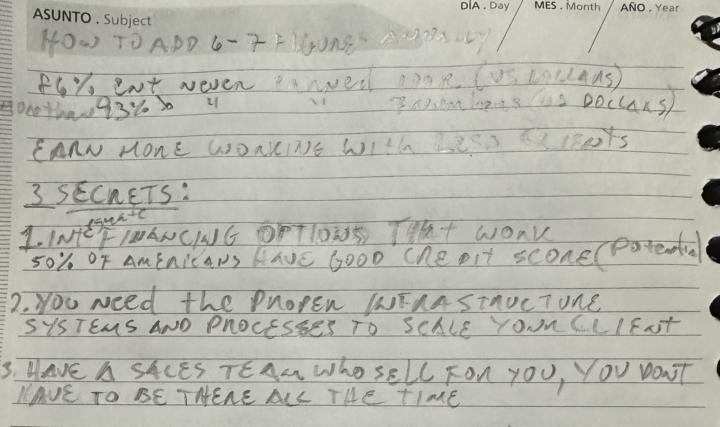 ASUNTO . Subject
DÍA . Day / MES . Month / AÑO . Year
HOW TO ADD 6-7 FIGURES ANNUALLY
86% ENT NEVER EARNED 100K (US DOLLARS)
More than 93% " " (US DOLLARS)
EARN MORE WORKING WITH LESS CLIENTS
3 SECRETS:
1. INTEGRATE FINANCING OPTIONS THAT WORK
50% OF AMERICANS HAVE GOOD CREDIT SCORE (Potential
2. YOU NEED the PROPER INFRASTRUCTURE
SYSTEMS AND PROCESSES TO SCALE YOUR CLIENT
3. HAVE A SALES TEAM WHO SELL FOR YOU, YOU DON'T
HAVE TO BE THERE ALL THE TIME